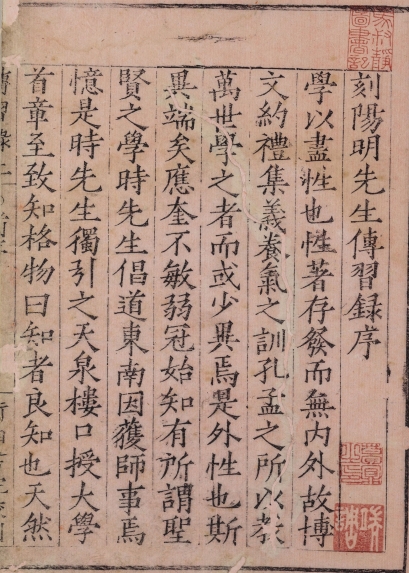 刻陽明先生傳習録序
學以盡性也性者存發而無內外故博
文約禮集義養氣之訓孔孟之所以教
萬世學之者而或少異焉是外性也斯
異端矣應奎不敏弱冠始知有所謂聖
賢之學時先生倡道東南因獲師事焉
憶是時先生獨引之天泉樓口授大學
首章至致知格物曰知者良知也天然